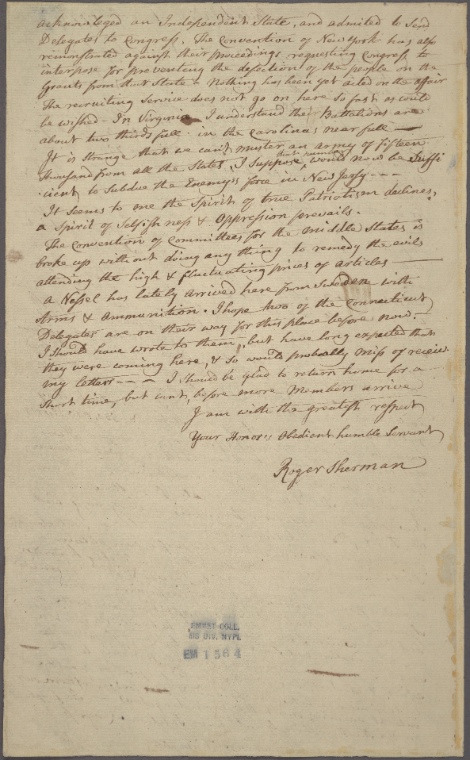 acknowledged an Independent State, and admitted to Send
Delegates to Congress, The Convention of New York has also
remonstrated against their proceedings, requesting Congress to
interpose for preventing the defection of the people on the
Grants from that State - Nothing has been yet acted on the affair
The recruiting Service does not go on here So fast as could
be wished - In Virginia I understand their Battalions are
about two thirds full - in the Carolinas near full —
It is Strange that we can't muster an army of fifteen
thousand from all the States, I Suppose that number would now be Suffi
cient to Subdue the Enemies force in New Jersey - - -
It Seems to me the Spirit of true Patriotism declines,
a Spirit of Selfishness & Oppression prevails.
The Convention of Committees for the middle States is
broke up without doing any thing to remedy the evils
attending the high & fluctuating prices of articles —
a Vessel has lately arrived here from Sweden with
Arms & ammunition. I hope two of the Connecticut
Delegates are on their way for this place before now,
I Should have wrote to them, but have long expected that
they were coming here, & So would probably miss of receiv
my letters - - - I Should be glad to return home for a
Short time, but cant before more members arrive
I am with the greatest respect
Your Honors Obedient humble Servant
Roger Sherman
EMMET COLL.
MS DIV. NYPL
EM 1564